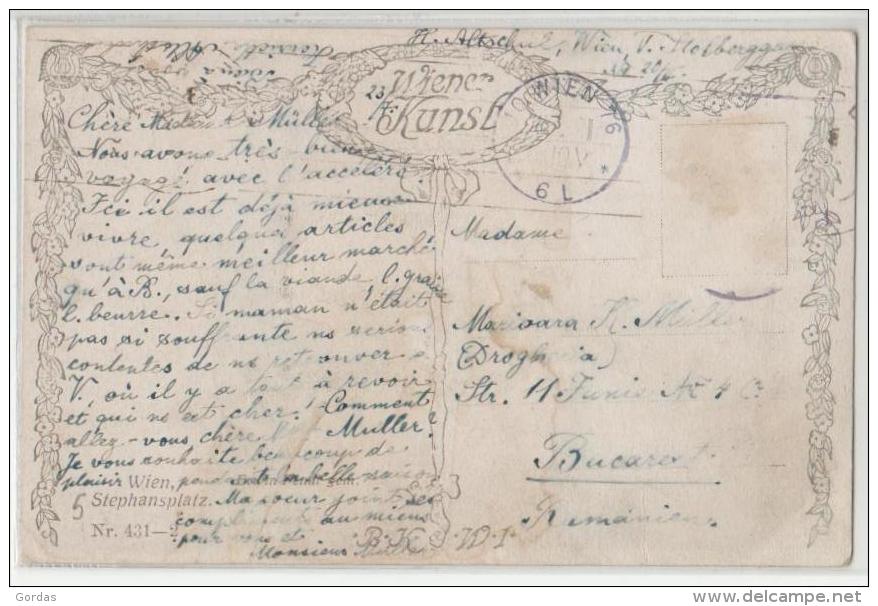 H. Altschul, Wien, V.
Wiener
Kunst
WIEN 76
6 L *
Chère Madame Müller
Nous avons très bien
voyagé avec l'acceléré.
Ici il est déjà mieux
vivre, quelques articles
sont même meilleur marché
qu'à B., sauf la viande l. graisse
l. beurre. Si maman n'était
pas si souffrante ns serions
contentes de ns retrouver à
V., où il y a tout à revoir
et qui ns est cher! Comment
allez-vous, chère Mme Muller?
Je vous souhaite beaucoup de
plaisir pendant la belle saison
Wien,
Stephansplatz.
Ma soeur joint ses
compliments au miens
pour vous et
Monsieur Muller
Nr. 431—
5
B. K. W. I.
Madame
Marioara H. Müller
(Drogheria)
Str. 11 Iunie No 4
Bucarest
Rumänien
DELCAMPE.NET
Gordas